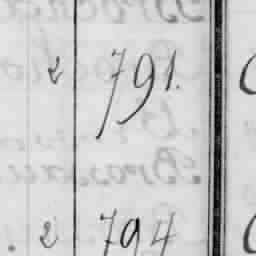 2 791.
. 2 794